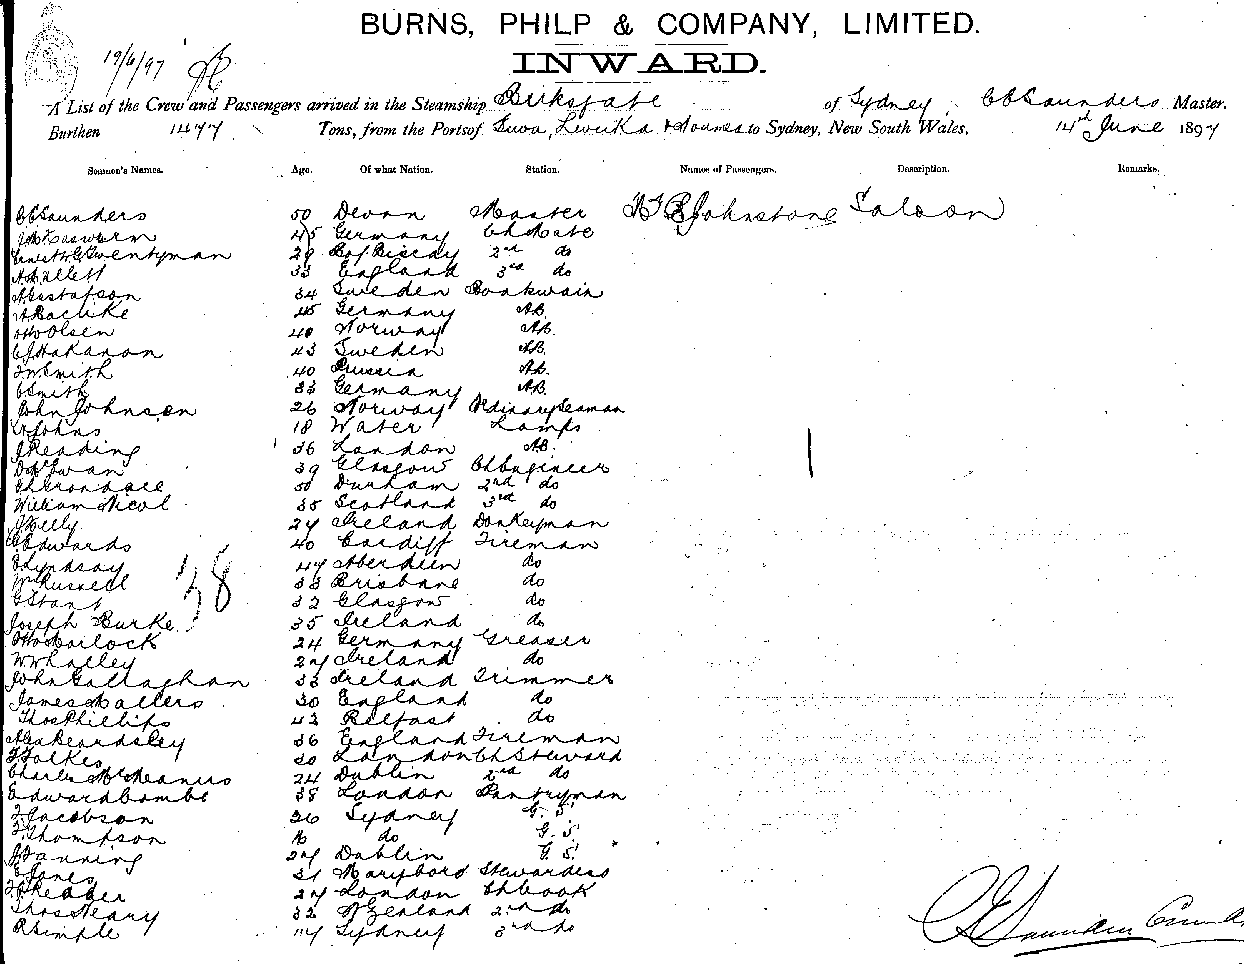 BURNS, PHILP & COMPANY, LIMITED.
INWARD.
19/6/97
A List of the Crew and Passengers arrived in the Steamship Birksgate of Sydney, C C Saunders Master.
Burthen 1477 Tons, from the Ports of Suva, Levuka & to Sydney, New South Wales, 14th June 1897
Seamen's Names. Age. Of what Nation. Station. Names of Passengers. Description. Remarks.
C C Saunders 50 Devon Master Johnstone Saloon
45 Germany Ch Mate
Twentyman 29 B of Biscay 2nd do
33 England 3rd do
A Gustafson 34 Sweden Boatswain
45 Germany AB.
Olsen 40 Norway AB.
C J Hakanon 43 Sweden AB.
Smith 40 Russia AB.
C Smith 33 Germany AB.
John Johnsen 26 Norway Ordinary Seaman
Johns 18 Water Lamps
J Reading 36 London AB
D McEwan 39 Glasgow Ch Engineer
50 Durham 2nd do
William Nicol 35 Scotland 3rd do
J Kelly 27 Ireland Donkeyman
C Edwards 40 Cardiff Fireman
Lyndsay 47 Aberdeen do
38
W Russell 33 Brisbane do
32 Glasgow do
Joseph Burke 35 Ireland do
24 Germany Greaser
W Whalley 27 Ireland do
John Gallaghan 33 Ireland Trimmer
James 30 England do
Thos Phillips 43 Belfast do
Beardsley 36 England Fireman
F Folkes 30 London Ch Steward
Charles 24 Dublin 2nd do
Edward Combe 38 London Pantryman
Jacobson 26 Sydney G. S.
F Thompson 16 do G. S.
J Fanning 27 Dublin G. S.
E Jones 31 Maryboro Stewardess
27 London Ch Cook
Thos Neary 32 N Zealand 2nd do
R Simple 17 Sydney 3rd do
Saunders